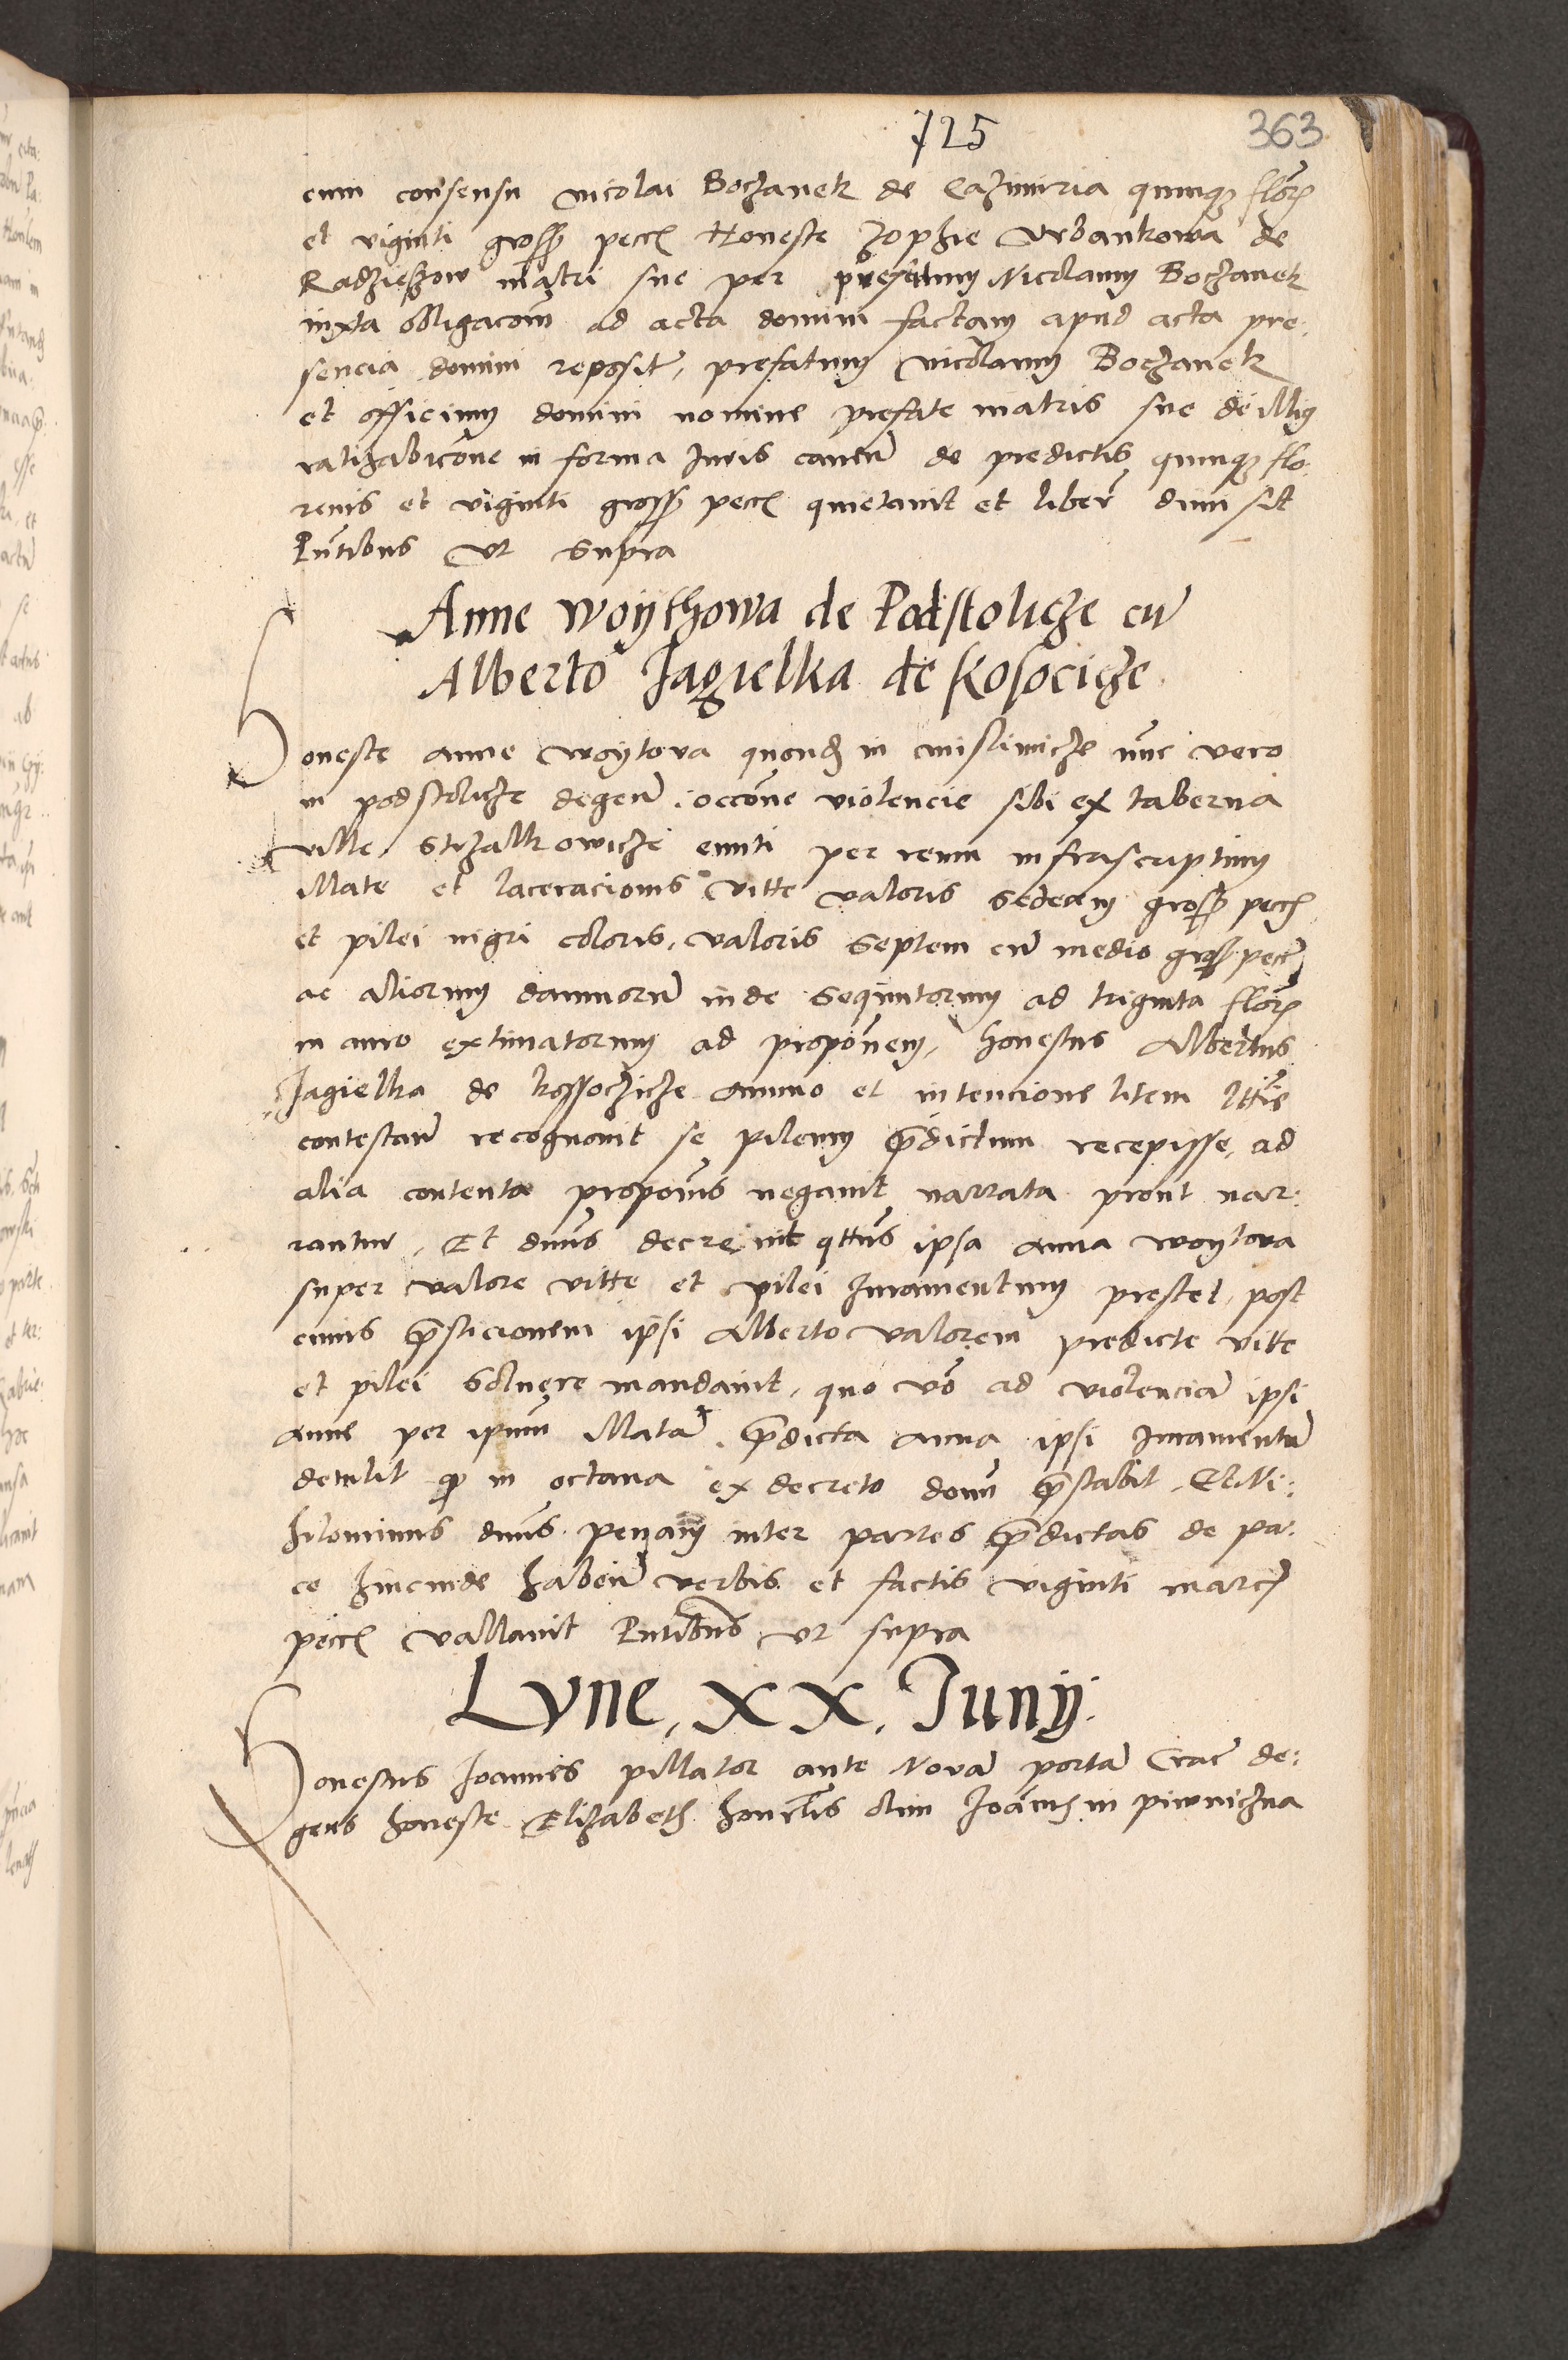 725
363
cum consensu nicolai Boczanek de Cazimiria quinq flor
et viginti gross pecc Honeste Zophie Vrbankowa de
Radzieszow matri sue per prefatum Nicolaum Boczanek
iuxta obligacom ad acta domini factam apud acta pre:
sencia domini reposit, prefatum Nicolaum Boczanek
et officium domini nomine prefate matris sue de illius
ratihabicone in forma Iuris caueñ de predictis quinq flo:
renis et viginti gross pecc quietauit et liber dimisit
Pntibus vt supra
Anne woythowa de Podstolicze cū
Alberto Jagielka de Kosocicze
Honeste anne woytowa quond in mislimicze nūc vero
in podstolicze degeñ. occōne violencie sibi ex taberna
ville Strzalkowicze eunti per reum infrascriptum
illate et laceracionis vitte valoris sedecim gross pecc
et pilei nigri coloris, valoris septem cū medio gross pecc
ac aliorum damnorū inde sequutorum ad triginta flor
in auro extimatorum ad proponem, honestus Albertus
Jagielka de kossoczicze animo et intencione litem lttīe
contestañ recognouit se pileum pdictum recepisse, ad
alia contenta propōnis negauit narrata prout nar:
rantur. Et dnus decreuit qttus ipsa anna woytowa
super valore vitte et pilei Iuramentum prestet, post
cuius psticionem ipsi Alberto valorem predicte vitte
et pilei soluere mandauit, quo vō ad violenciā ipsi
anne per ipsum illatā, pdicta anna ipsi Iuramentū
detulit q in octaua ex decreto domi pstabit, Et Ni:
hilominus dnus penam inter partes pdictas de pa:
ce hincinde habeñ verbis et factis viginti marc
pecc vallauit Pntibus vt supra
Lvne, XX, Junij:
Honestus Joannes pillator ante Nouā portā Crac de:
gens honeste Elizabeth consortis olim Joannis in piwniczna